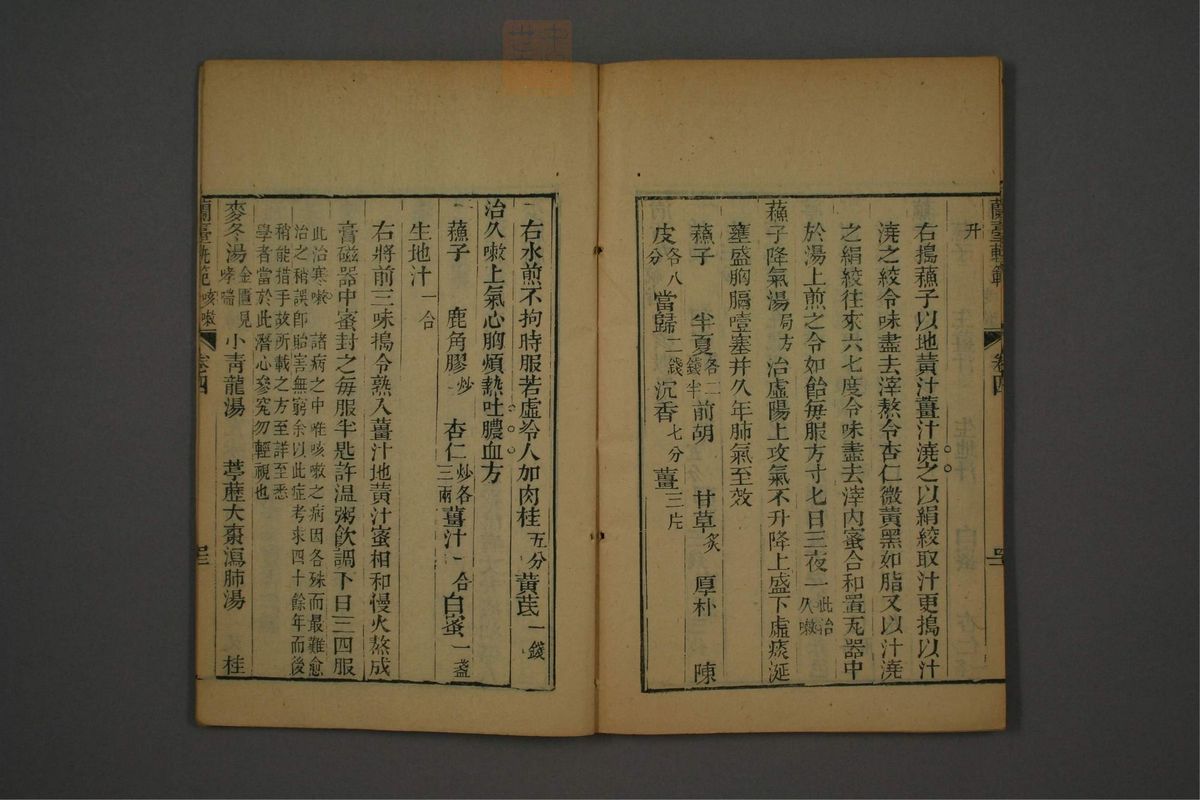 蘭臺軌範 卷四
升
右搗蘓子以地黃汁薑汁澆之以絹絞取汁更搗以汁
澆之絞令味盡去滓熬令杏仁微黃黑如脂又以汁澆
之絹絞往來六七度令味盡去滓內蜜合和置瓦器中
於湯上煎之令如飴每服方寸匕日三夜一此治久嗽
蘓子降氣湯局方 治虛陽上攻氣不升降上盛下虛痰涎
壅盛胸膈噎塞并久年肺氣至效
蘓子 半夏各二錢半 前胡 甘草炙 厚朴 陳
皮各八分 當歸二錢 沉香七分 薑三片
右水煎不拘時服若虛冷人加肉桂五分黃茋一錢
治久嗽上氣心胸煩熱吐膿血方
蘓子 鹿角膠炒 杏仁炒各三兩 薑汁一合 白蜜一盞
生地汁一合
右將前三味搗令熟入薑汁地黃汁蜜相和慢火熬成
膏磁器中密封之每服半匙許温粥飲調下日三四服
此治寒嗽 諸病之中唯咳嗽之病因各殊而最難愈
治之稍誤卽貽害無窮余以此症考求四十餘年而後
稍能措手故所載之方至詳至悉
學者當於此潛心參究勿輕視也
麥冬湯金匱見哮喘 小靑龍湯 葶藶大棗瀉肺湯 桂
蘭臺軌範 咳嗽 卷四